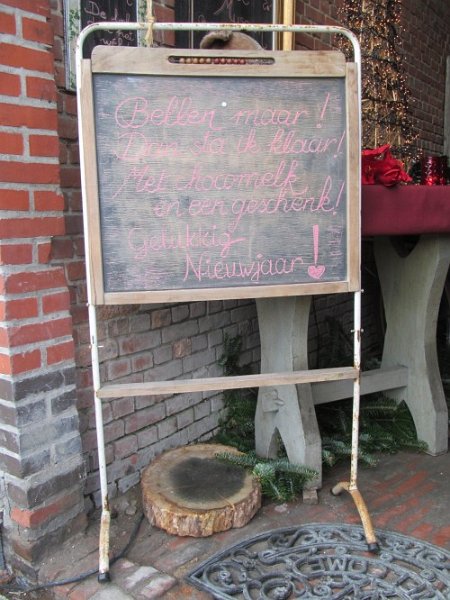 Bellen maar!
Dan sta ik klaar!
Met chocomelk
en een geschenk!
Gelukkig
Nieuwjaar!